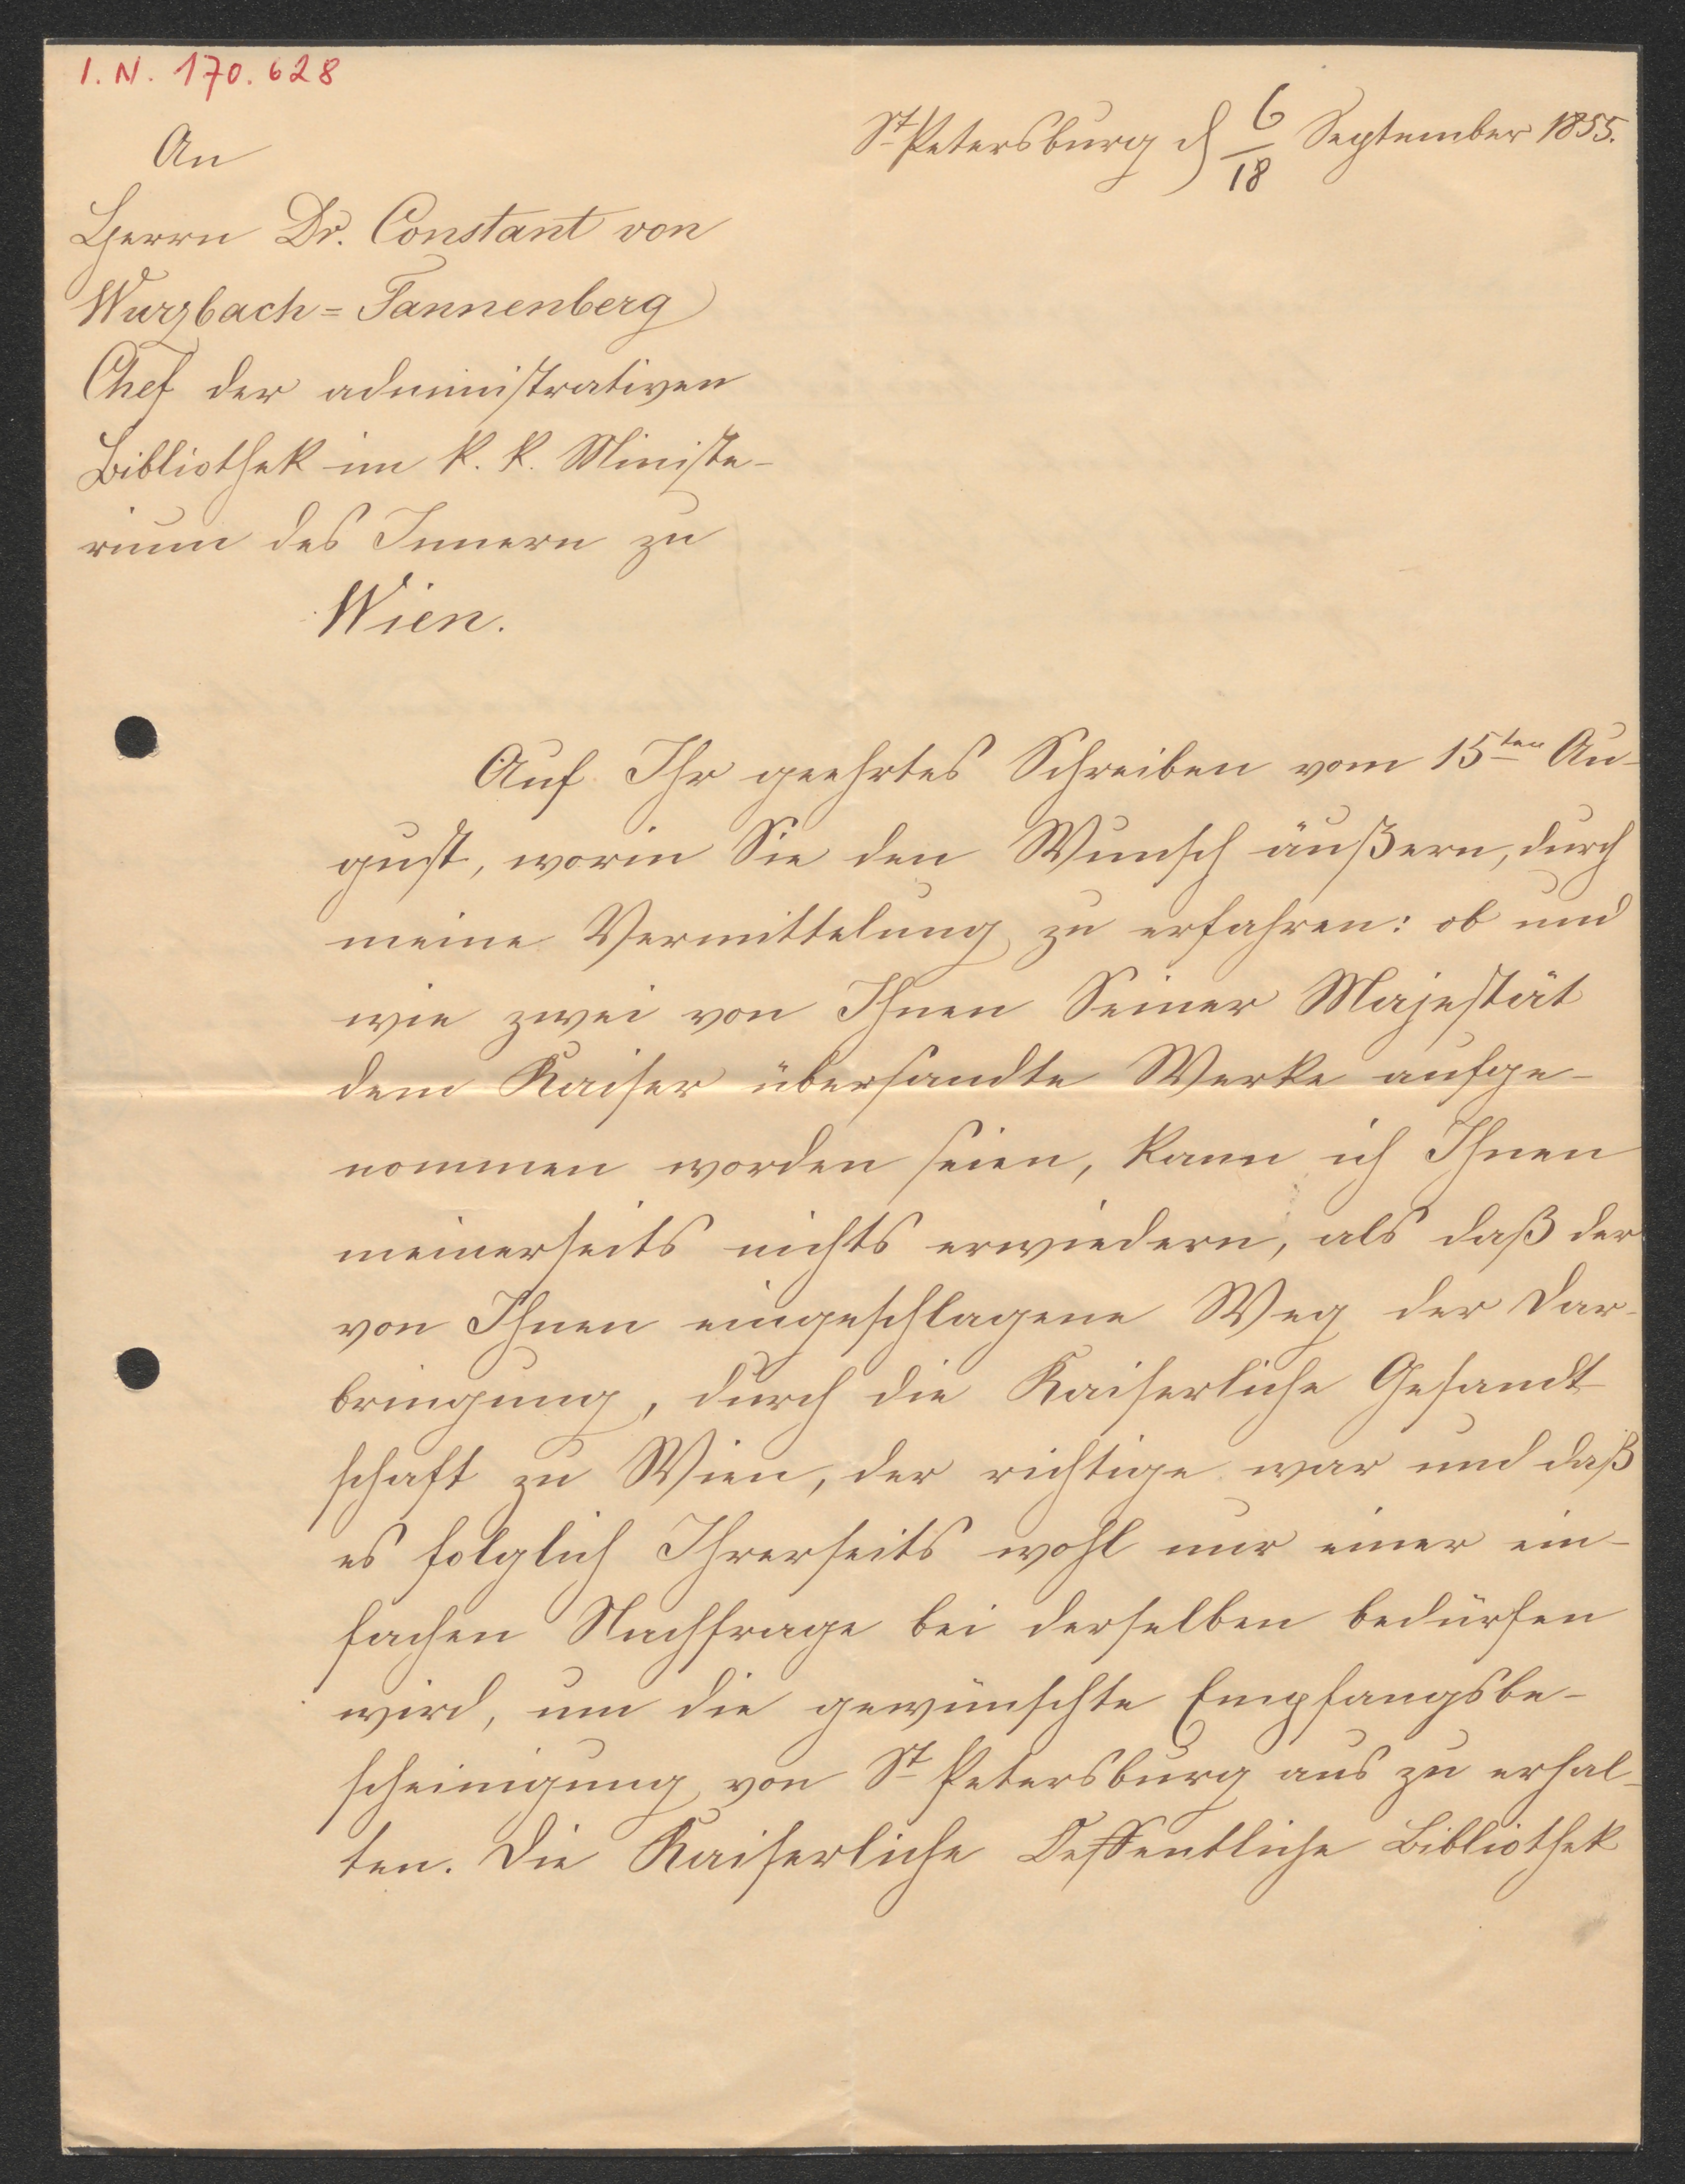 I. N. 170.628
St Petersburg d 6/18 September 1855.
An
Herrn Dr. Constant von
Wurzbach=Tannenberg
Chef der administrativen
Bibliothek im k. k. Ministe-
rium des Innern zu
Wien.
Auf Ihr geehrtes Schreiben vom 15ten Au-
gust, worin Sie den Wunsch äußern, durch
meine Vermittelung zu erfahren: ob und
wie zwei von Ihnen Seiner Majestät
dem Kaiser übersandte Werke aufge-
nommen worden seien, kann ich Ihnen
meinerseits nichts erwiedern, als daß der
von Ihnen eingeschlagene Weg der Dar-
bringung, durch die Kaiserliche Gesandt-
schaft zu Wien, der richtige war und daß
es folglich Ihrerseits wohl nur einer ein-
fachen Nachfrage bei derselben bedürfen
wird, um die gewünschte Empfangsbe-
scheinigung von St Petersburg aus zu erhal-
ten. Die Kaiserliche Oeffentliche Bibliothek